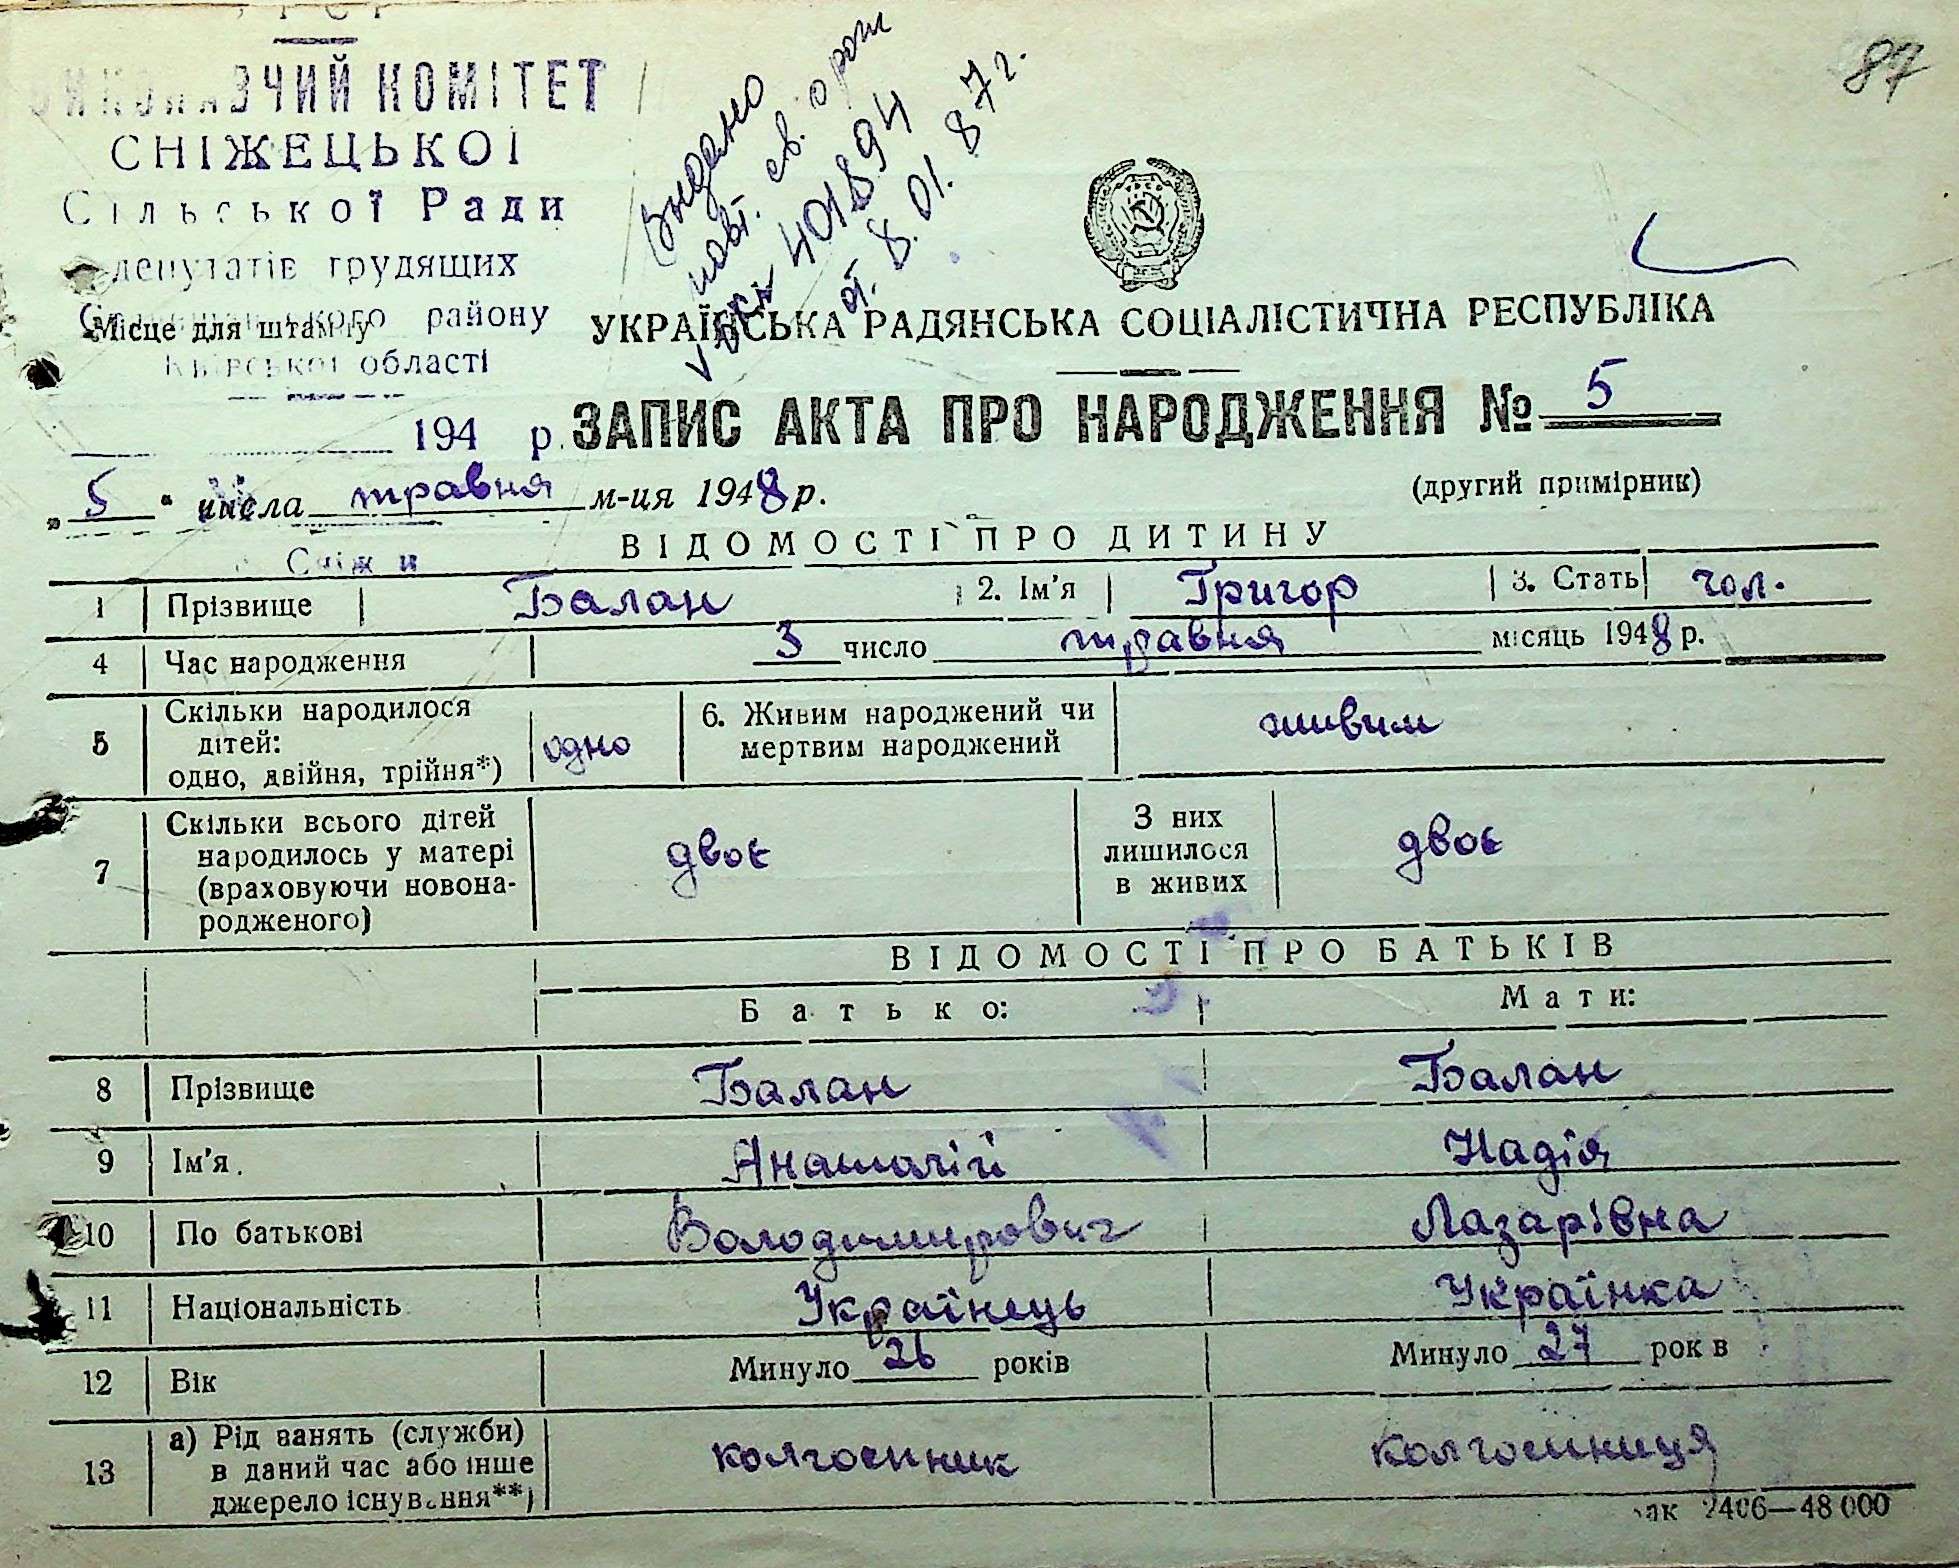 87
ВИКОНАВЧИЙ КОМІТЕТ
СНІЖЕЦЬКОІ
Сільської Ради
депутатів трудящих
району
Київської області
Місце для штампу
194 р.
Видано
повт. св. о рож
401894
от. 8.01.87г.
УКРАЇНСЬКА РАДЯНСЬКА СОЦІАЛІСТИЧНА РЕСПУБЛІКА
ЗАПИС АКТА ПРО НАРОДЖЕННЯ № 5
„5“ числа травня м-ця 1948 р.
(другий примірник)
ВІДОМОСТІ ПРО ДИТИНУ
1 Прізвище Балан 2. Ім'я Григор 3. Стать чол.
4 Час народження 3 число травня місяць 1948 р.
5 Скільки народилося дітей: одно, двійня, трійня*) одно 6. Живим народжений чи мертвим народжений живим
7 Скільки всього дітей народилось у матері (враховуючи новона-родженого) двоє З них лишилося в живих двоє
ВІДОМОСТІ ПРО БАТЬКІВ
Батько: Мати:
8 Прізвище Балан Балан
9 Ім'я. Анатолій Надія
10 По батькові Володимирович Лазарівна
11 Національність Українець Українка
12 Вік Минуло 26 років Минуло 27 рок в
13 а) Рід занять (служби) в даний час або інше джерело існування**) колгоспник колгоспниця
2406—48 000